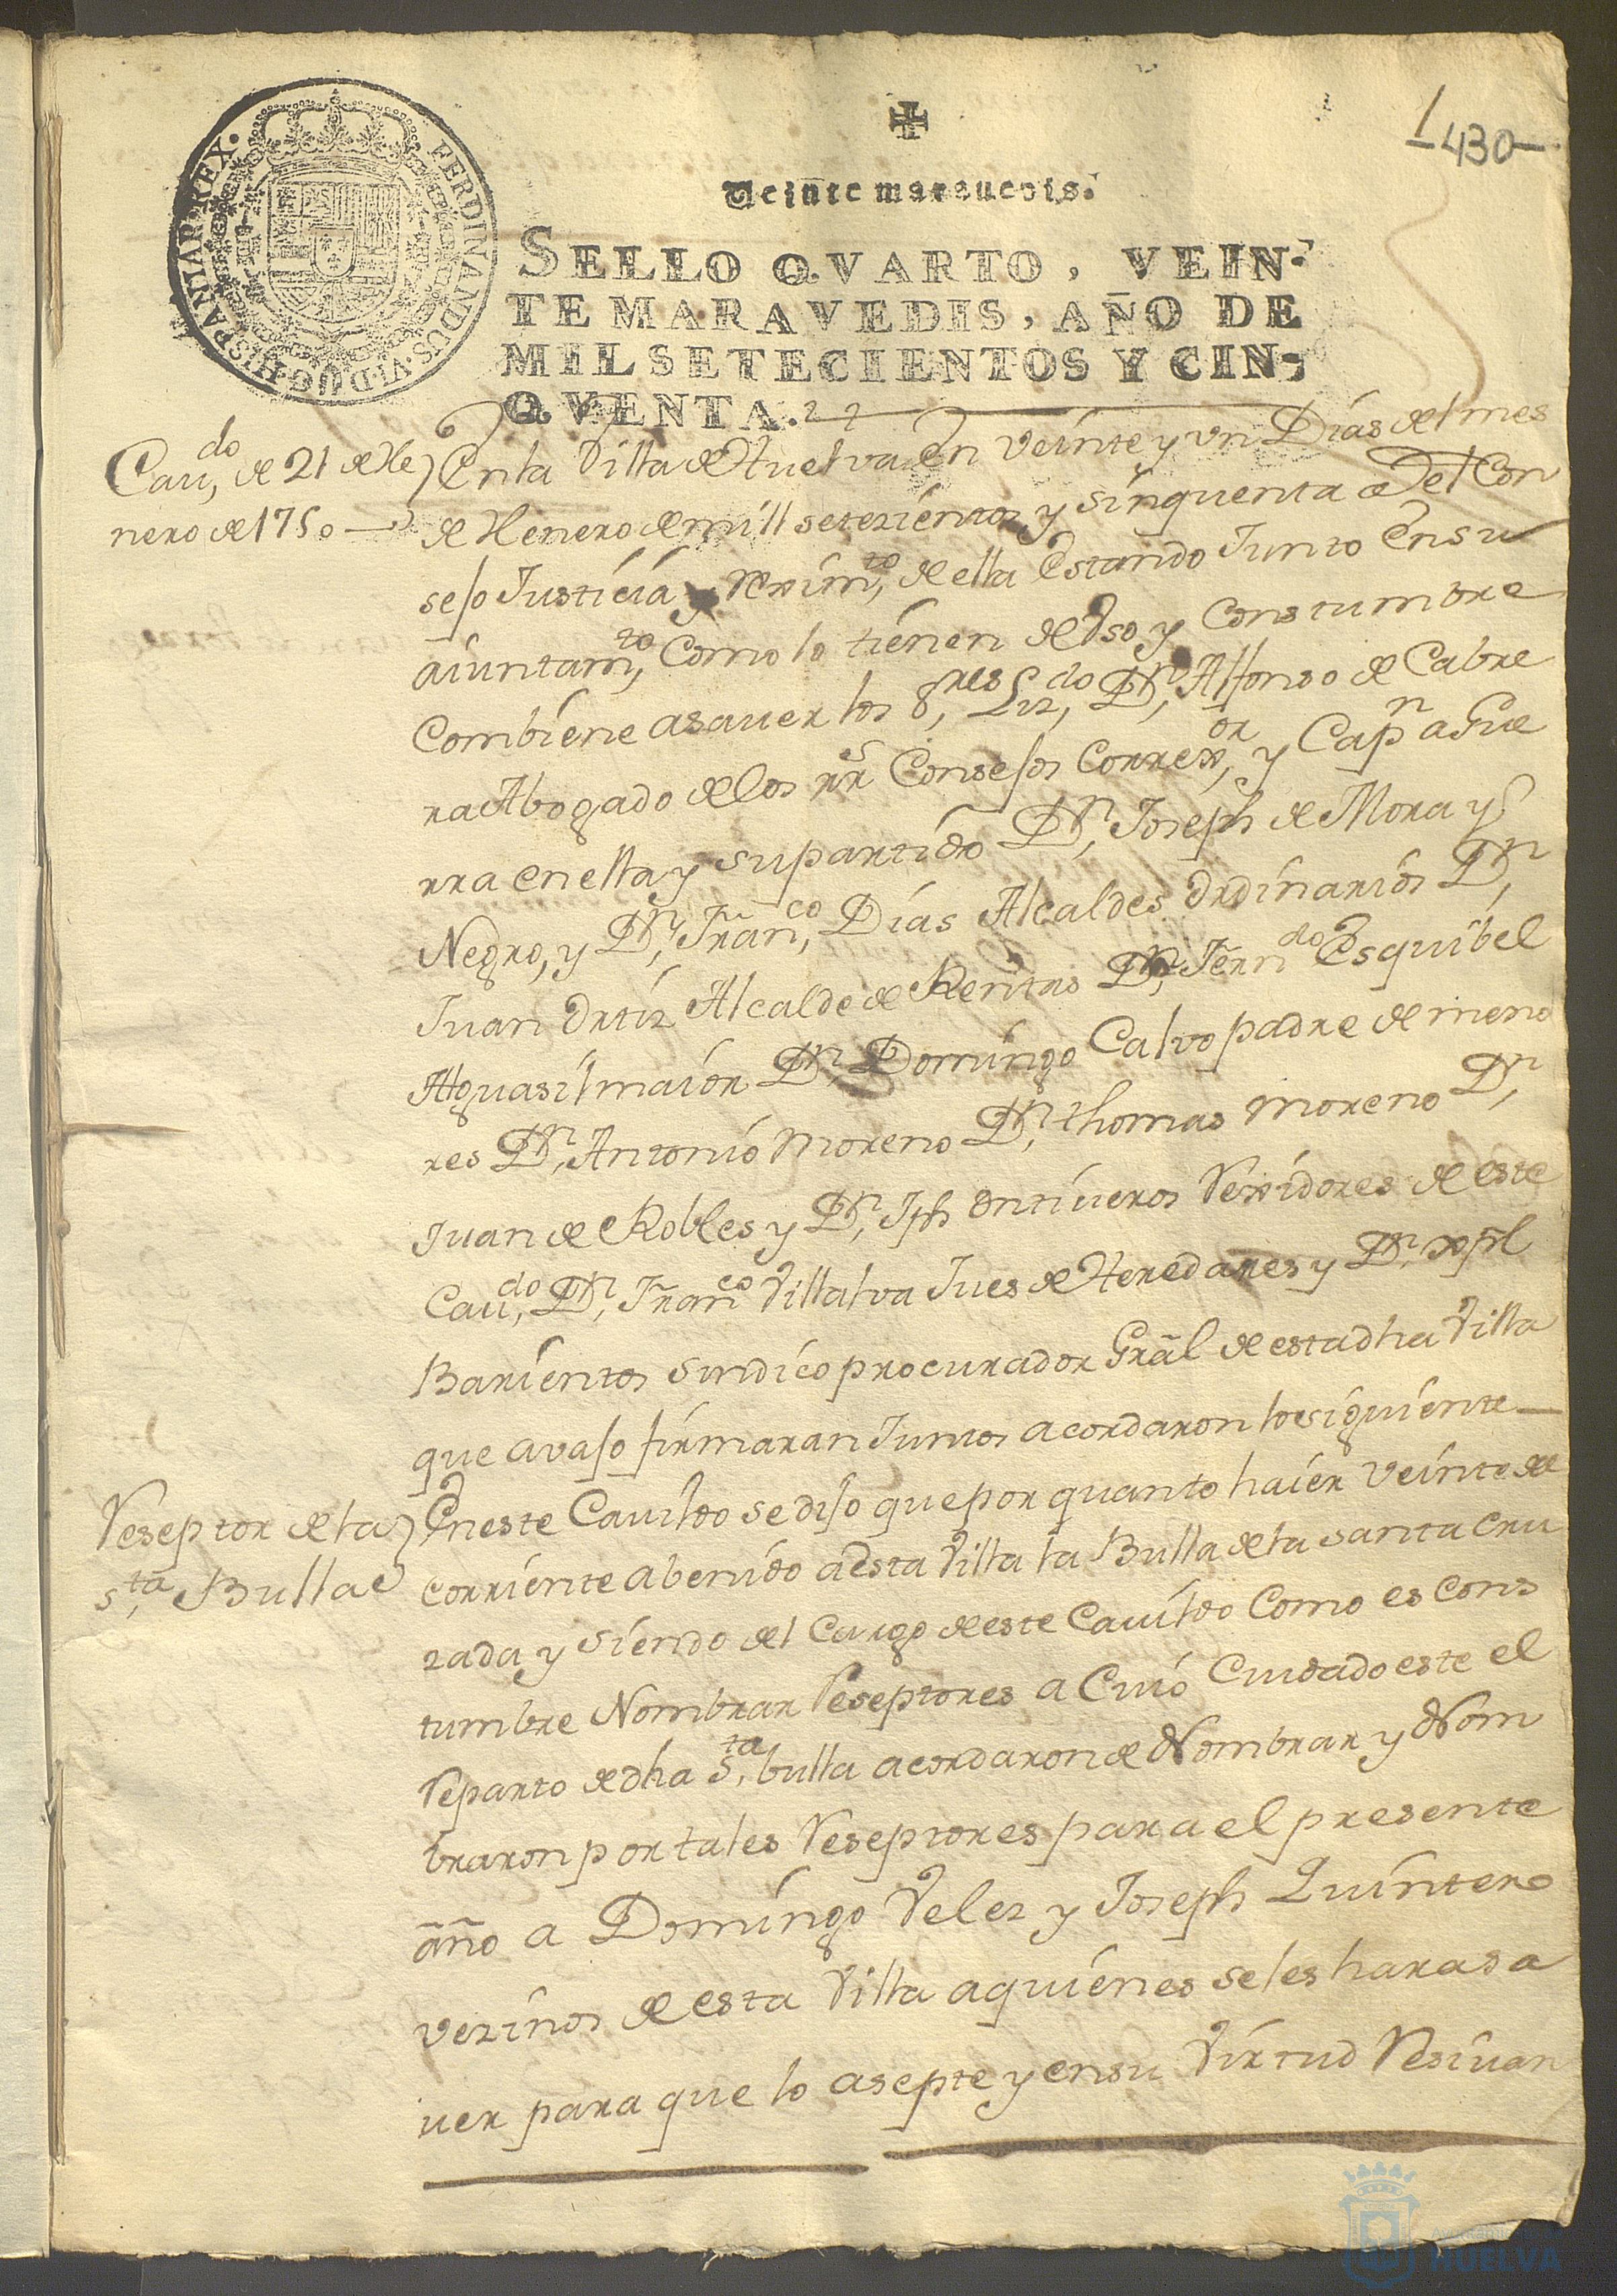 1
430
FERDINANDUS.VI.D.G.HISPANIAR.REX.
Veinte maravedis.
SELLO QVARTO, VEIN-
TE MARAVEDIS, AÑO DE
MIL SETECIENTOS Y CIN-
QVENTA.
Caudo, de 21 de He
nero de 1750
En la Villa de Huelva En veínte y vn Días del mes
de Henero de míll seteziéntos y sínquenta el Con
sejo Justícia y Rexímto, de ella Estando Junto En su
aiuntamto, Como lo tíenen de Vso y Constumbre
Combíene asauer los Sres, Lizdo, Dn, Alfonso de Cabre
ra Abogado de los rrs Consejos Correxor, y Capn a Gue
rra en ella y su partído Dn, Joseph de Mora y
Negro, y Dn, Franco, Días Alcaldes Ordínaríos Dn,
Juan Ortíz Alcalde de Rentas Dn, Ferndo Esquíbel
Alguasíl maíor Dn, Domíngo Calvo padre de meno
res Dn, Antonío Moreno Dn, thomas Moreno Dn,
Juan de Robles y Dn, Jph Ontíueros Rexídores de este
Caudo, Dn, Franco Víllalva Jues de Heredades y Dn, xpl
Baríentos Sindíco procurador Grāl de esta dha Villa
que avajo fírmaran Juntos acordaron lo síguíente
Reseptor de la
sta, Bulla
En este Cauíldo se díjo que por quanto haíer veínte del
corríente a benído a Esta Villa la Bulla de la santa Cru
zada y síendo del Cargo de este Cauíldo Como es Cons
tumbre Nombrar Reseptores a Cuío Cuidado este el
Reparto de dha Sta, bulla acordaron de Nombrar y Nom
braron por tales Reseptores para el presente
año a Domíngo Velez y Joseph Quíntero
vezínos de esta Villa a quíénes se les hara sa
uer para que lo asepte y en su Vírtud Resíuan
HUELVA